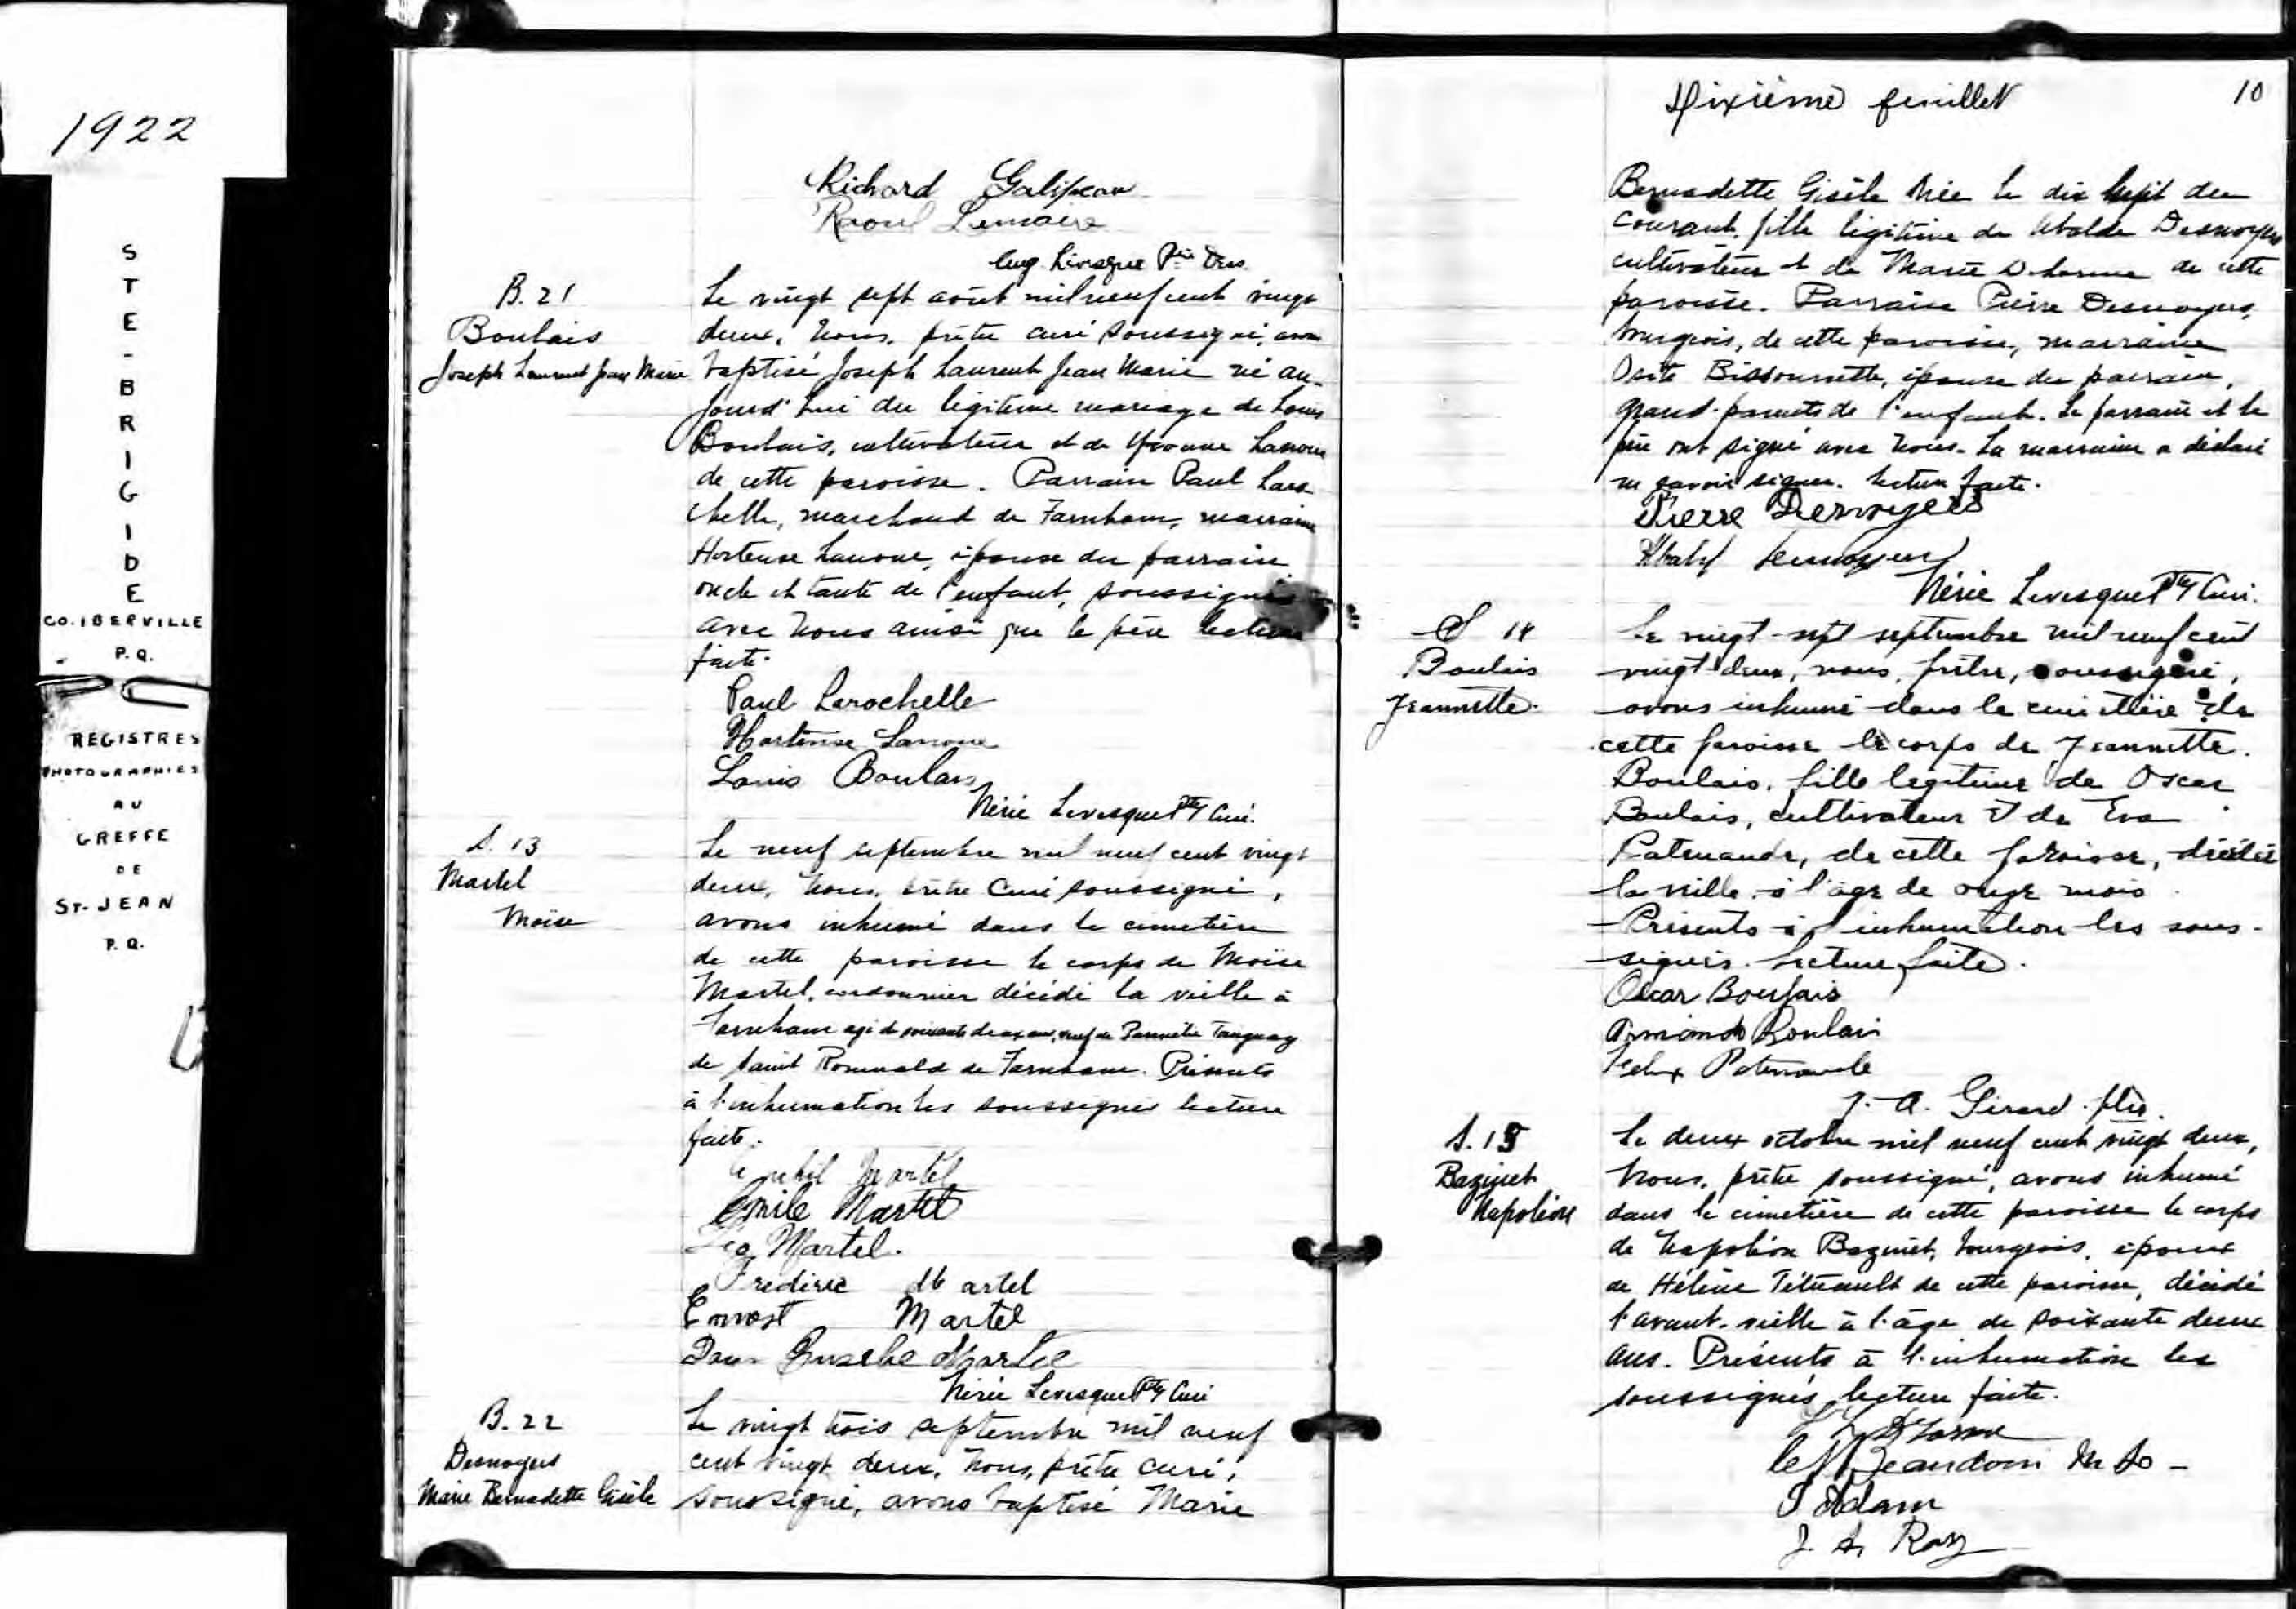 1922
STE-BRIGIDE
CO. IBERVILLE
P.Q.
REGISTRES
PHOTOGRAPHIES
AU
GREFFE
DE
ST-JEAN
P.Q.
Richard Galipeau
Raoul Lemaire
Eug. Livesque Ptre
B. 21
Boulais
Joseph Laurent Jean Marie
Le vingt sept août mil neuf cent vingt
deux, Nous, prêtre curé soussigné, avons
baptisé Joseph Laurent Jean Marie né au-
jourd'hui du légitime mariage de Louis
Boulais, cultivateur et de Yvonne Lanoue
de cette paroisse. Parrain Paul Laro-
chelle, marchand de Farnham, marraine
Hortense Lanoue, épouse du parrain
oncle et tante de l'enfant, soussignés
avec nous ainsi que le père lecture
faite.
Paul Larochelle
Hortense Lanoue
Louis Boulais
Nérée Levesque Ptre Curé.
S. 13
Martel
Moïse
Le neuf septembre mil neuf cent vingt
deux, Nous, prêtre Curé soussigné,
avons inhumé dans le cimetière
de cette paroisse le corps de Moïse
Martel, cordonnier décédé la veille à
Farnham agé de soixante deux ans, veuf de Tanguay
de Saint Romuald de Farnham. Présents
à l'inhumation les soussignés lecture
faite.
Martel
Emile Martel
Léo Martel.
Frédéric Martel
Ernest Martel
Martel
Nérée Levesque Ptre Curé
B. 22
Desnoyers
Marie Bernadette Gisèle
Le vingt trois septembre mil neuf
cent vingt deux, Nous, prêtre curé,
soussigné, avons baptisé Marie
Dixième feuillet
10
Bernadette Gisèle née le dix sept du
courant, fille légitime de Ubalde Desnoyers
cultivateur et de Marie Delorme de cette
paroisse. Parrain Pierre Desnoyers,
bourgeois, de cette paroisse, marraine
Osite Bissonnette, épouse du parrain,
grand-parents de l'enfant. Le parrain et le
père ont signé avec nous. La marraine a déclaré
ne savoir signer. Lecture faite.
Pierre Desnoyers
Ubald Desnoyers
Nérée Levesque Ptre Curé.
S 14
Boulais
Jeannette.
Le vingt-sept septembre mil neuf cent
vingt deux, nous, prêtre, soussigné,
avons inhumé dans le cimetière de
cette paroisse le corps de Jeannette
Boulais, fille legitime de Oscar
Boulais, cultivateur & de Eva
Patenaude, de cette paroisse, décédée
la veille à l'âge de onze mois.
Présents à l'inhumation les sous-
signés. Lecture faite.
Oscar Boulais
Armand Boulais
Felix Patenaude
J. A. Girard. ptre.
S. 15
Bazinet
Napoléon
Le deux octobre mil neuf cent vingt deux,
Nous, prêtre soussigné, avons inhumé
dans le cimetière de cette paroisse le corps
de Napoléon Bazinet, bourgeois, époux
de Hélène Tétreault de cette paroisse, décédé
l'avant-veille à l'âge de soixante deux
ans. Présents à l'inhumation les
soussignés lecture faite.
Beaudoin
Adam
J. A. Roy